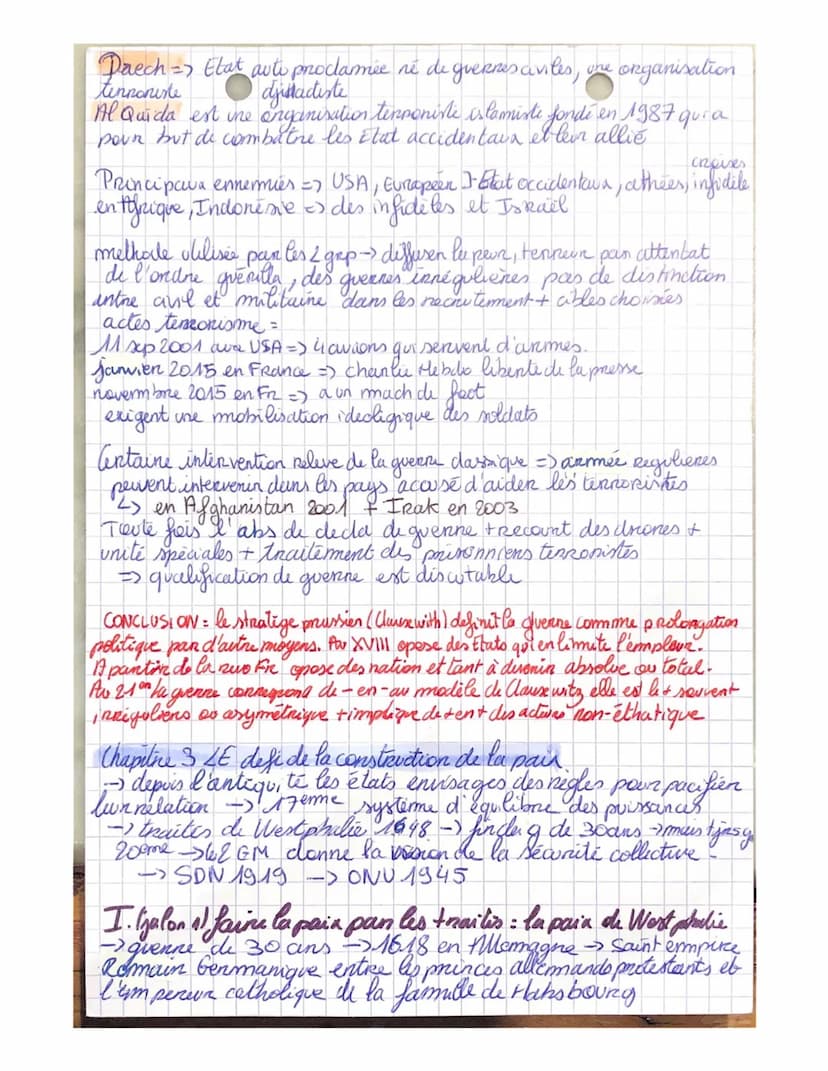 Daech => Etat auto proclammée né de guerres civiles, une organisation
terroriste djihadiste
Al Quida est une organisation terroriste islamiste fondé en 1987 qui a
pour but de combatre les Etat accidentaux et leur allié
croises
Principaux ennemies => USA, Européen Etat occidentaux, athées, infidèle
en Afrique, Indonésie => des infidèles et Israël
methode utilisée par les 2 grp -> diffuser la peur, terreur par attentat
de l'ordre guérilla, des guerres irrégulières pas de distinction
entre civil et militaire dans les recrutement + cibles choisies
actes terrorisme =
11 sep 2001 aux USA => 4 avions qui servent d'armes.
janvier 2015 en France => charlie Hebdo liberte de la presse
novembre 2015 en Fr => a un mach de foot
exigent une mobilisation ideoligique des soldats
Certaine intervention releve de la guerre classique => armée regulieres
peuvent intervenir dans les pays acausé d'aider les terroristes
↳ en Afghanistan 2001 + Irak en 2003
Toute fois l'abs de decla de guerre + recourt des drones +
unité spéciales + traitement des prisonniers terroristes
=> qualification de guerre est discutable
CONCLUSION = le stratège prussien (Clausewith) definit la guerre commme prolongation
politique par d'autre moyens. Au XVIII opose des Etats qui en limite l'emploi.
A partir de la rvo Fr opose des nation et tant à devenir absolue ou total.
Au 21em la guerre correspond de - en - au modèle de Clausewitz elle est le + souvent
irréguliers ou asymétrique + implique de + en + des acteurs non-éthatique
Chapitre 3 LE defi de la construction de la paix
-> depuis l'antiquité les états envisages des règles pour pacifier
leur relation -> 17eme système d'équilibre des puissances
-> traités de Westphalie 1648 -> fin de g de 30 ans -> mais tjrs g
20eme -> les 2 GM donne la vision de la sécurité collective -
-> SDN 1919 -> ONU 1945
I. (jalon 1) faire la paix par les traités : la paix de Westphalie
-> guerre de 30 ans -> 1618 en Allemagne -> Saint empire
Romain Germanique entre les princes allemands protestants et
l'empereur catholique de la famille de Habsbourg